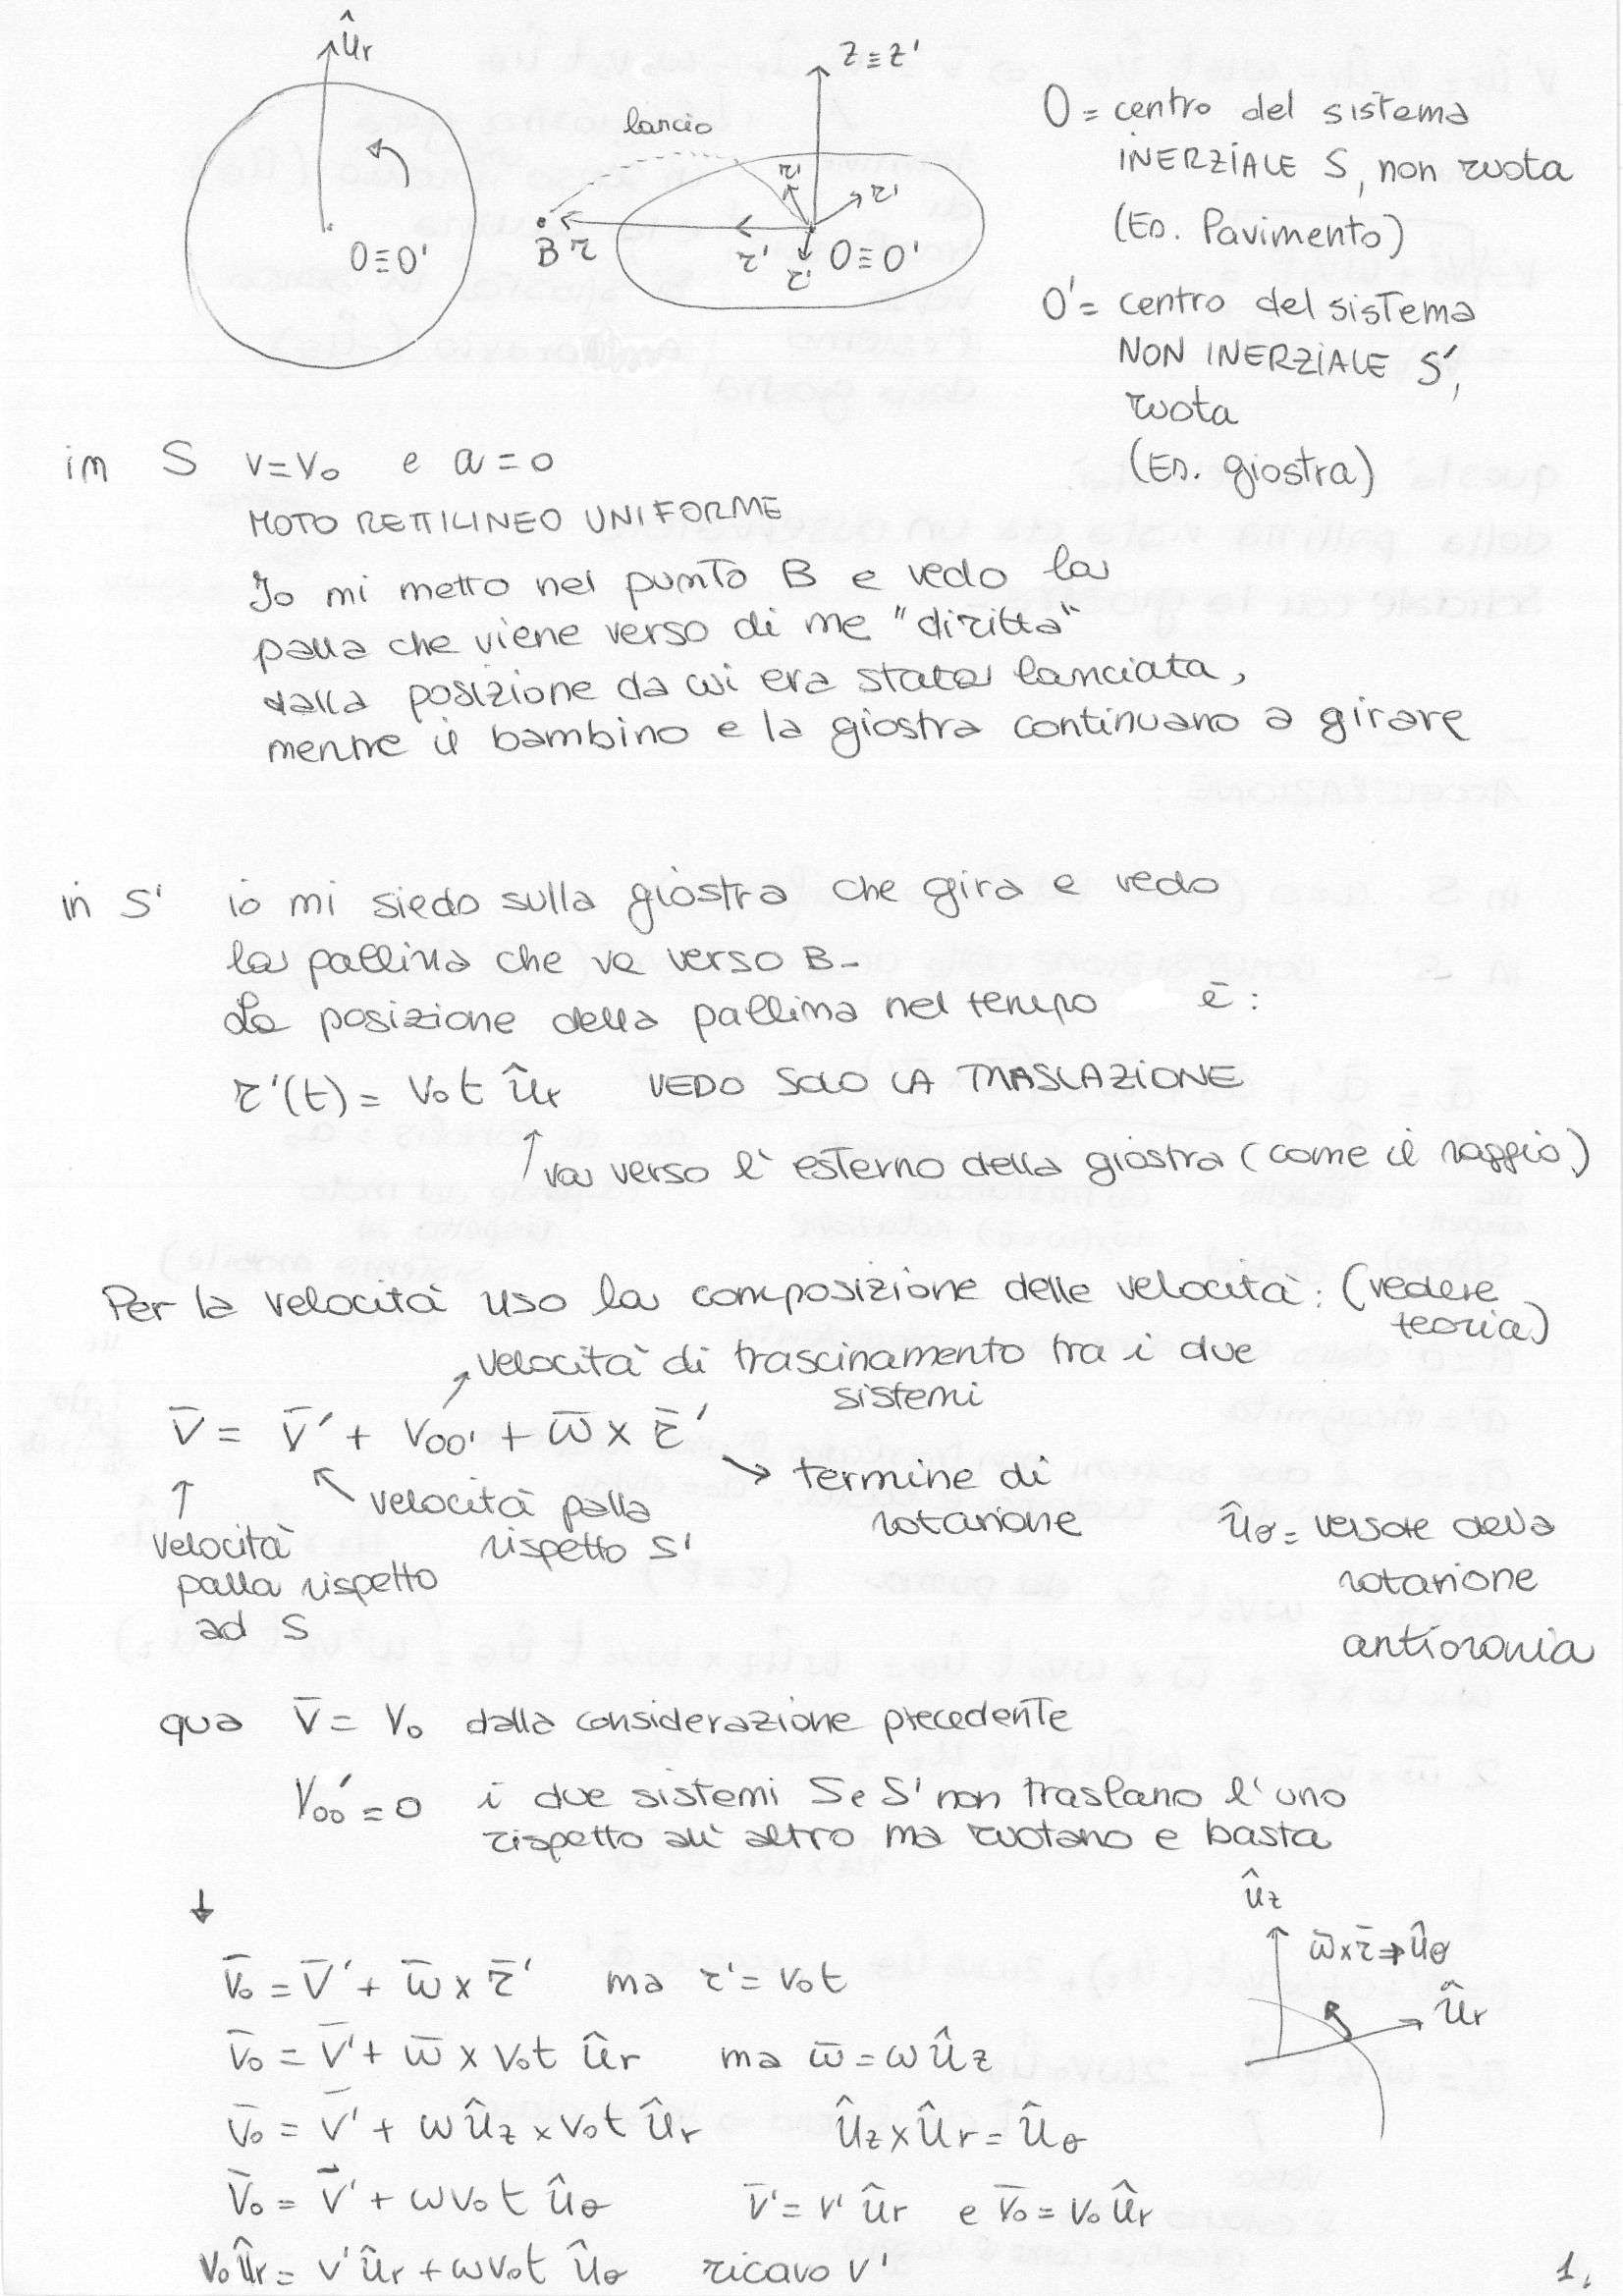 ûr
O≡O'
lancio
z≡z'
r'
r'
B r
r'
r'
O≡O'
O = centro del sistema
INERZIALE S, non ruota
(Es. Pavimento)
O' = centro del sistema
NON INERZIALE S',
ruota
(Es. giostra)
in S v=v₀ e a=0
MOTO RETTILINEO UNIFORME
Io mi metto nel punto B e vedo la
palla che viene verso di me "diritta"
dalla posizione da cui era stata lanciata,
mentre il bambino e la giostra continuano a girare
in S' io mi siedo sulla giostra che gira e vedo
la pallina che va verso B-
La posizione della pallina nel tempo è:
r'(t) = v₀t ûr VEDO SOLO LA TRASLAZIONE
↑ va verso l'esterno della giostra (come il raggio)
Per la velocità uso la composizione delle velocità: (vedere
teoria)
velocità di trascinamento tra i due
sistemi
v̄ = v̄' + v₀₀' + ω̄ × r̄'
→ termine di
rotazione
velocità palla
rispetto S'
velocità
palla rispetto
ad S
ûθ = versore della
rotazione
antioraria
qua v̄ = v₀ dalla considerazione precedente
v₀₀' = 0 i due sistemi S e S' non traslano l'uno
rispetto all'altro ma ruotano e basta
↓
ûz
ω̄×r̄ ⇒ ûθ
ûr
v̄₀ = v̄' + ω̄ × r̄' ma r' = v₀t
v̄₀ = v̄' + ω̄ × v₀t ûr ma ω̄ = ω ûz
v̄₀ = v̄' + ω ûz × v₀t ûr ûz × ûr = ûθ
v̄₀ = v̄' + ωv₀t ûθ v̄' = v' ûr e v̄₀ = v₀ ûr
v₀ûr = v' ûr + ωv₀t ûθ ricavo v'
1.